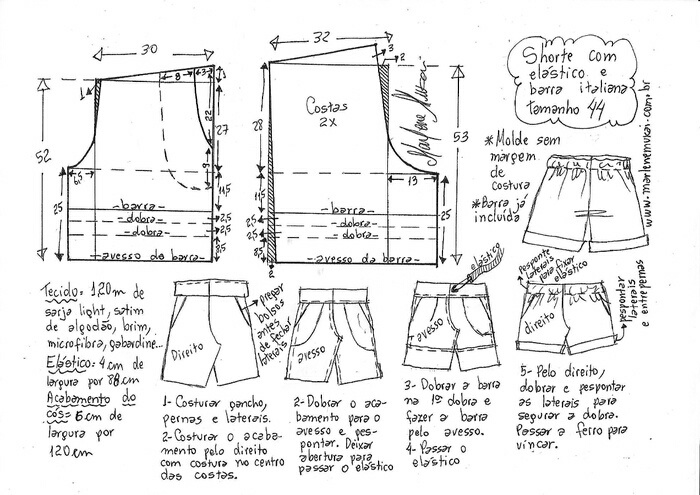 Shorte com
elástico e
barra italiana
tamanho 44
www.marlenemukai.com.br
*Molde sem
margem
de
costura
*Barra já
incluída
30
1
8
3
3
22
27
9
52
6,5
11,5
25
-barra-
-dobra-
-dobra-
2,5
2,5
3,5
avesso da barra-
32
3
2
Costas
2X
Marlene Mukai
28
53
13
11,5
25
-barra-
-dobra-
-dobra-
2,5
2,5
3,5
avesso da barra
2
Tecido= 1,20m de
sarja light, satim
de algodão, brim,
microfibra, gabardine...
Elástico: 4 cm de
largura por 88 cm
Acabamento do
cós= 6 cm de
largura por
120 cm
Direito
Prepar
bolsos
antes
de fechar
laterais
1- Costurar gancho,
pernas e laterais.
2- Costurar o acaba-
mento pelo direito
com costura no centro
das costas.
avesso
2- Dobrar o aca-
bamento para o
avesso e pes-
pontar. Deixar
abertura para
passar o elástico
elástico
avesso
3- Dobrar a barra
na 1ª dobra e
fazer a barra
pelo avesso.
4- Passar o
elástico
pesponte
laterais
para fixar
elástico
direito
pespontar
laterais
e entrepernas
5- Pelo direito,
dobrar e pespontar
as laterais para
segurar a dobra.
Passar a ferro para
vincar.